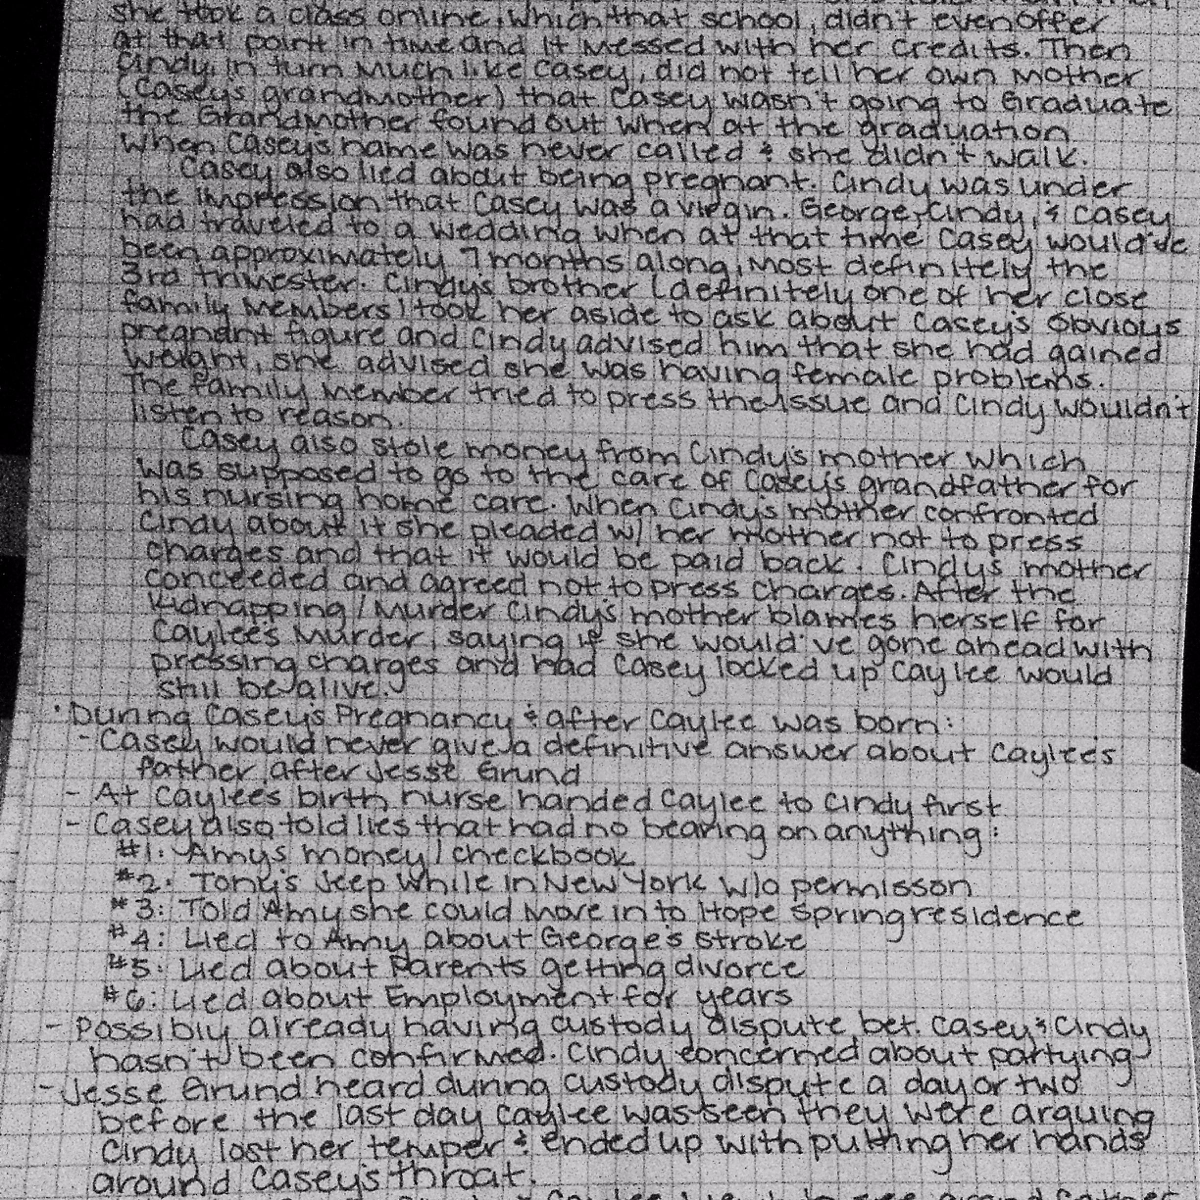 she took a class online, which that school, didn't even offer
at that point in time and it messed with her credits. Then
Cindy, in turn much like Casey, did not tell her own mother
(Casey's grandmother) that Casey wasn't going to Graduate
the Grandmother found out when at the graduation
when Casey's name was never called & she didn't walk.
Casey also lied about being pregnant. Cindy was under
the impression that Casey was a virgin. George, Cindy, & Casey
had traveled to a wedding when at that time Casey would've
been approximately 7 months along, most definitely the
3rd trimester. Cindy's brother (definitely one of her close
family members) took her aside to ask about Casey's obvious
pregnant figure and Cindy advised him that she had gained
weight, she advised she was having female problems.
The family member tried to press the issue and Cindy wouldn't
listen to reason.
Casey also stole money from Cindy's mother which
was supposed to go to the care of Casey's grandfather for
his nursing home care. When Cindy's mother confronted
Cindy about it she pleaded w/ her mother not to press
charges and that it would be paid back. Cindy's mother
conceeded and agreed not to press charges. After the
Kidnapping/Murder Cindy's mother blames herself for
Caylee's Murder, saying if she would've gone ahead with
pressing charges and had Casey locked up Caylee would
still be alive.
· During Casey's Pregnancy & after Caylee was born:
- Casey would never give a definitive answer about Caylee's
father after Jesse Grund
- At Caylee's birth nurse handed Caylee to Cindy first
- Casey also told lies that had no bearing on anything:
#1: Amy's money/checkbook
#2: Tony's Jeep while in New York w/o permisson
#3: Told Amy she could move in to Hope Spring residence
#4: Lied to Amy about George's stroke
#5: Lied about Parents getting divorce
#6: Lied about Employment for years
- Possibly already having custody dispute bet. Casey & Cindy
hasn't been confirmed. Cindy concerned about partying
- Jesse Grund heard during custody dispute a day or two
before the last day Caylee was seen they were arguing
Cindy lost her temper & ended up with putting her hands
around Casey's throat.